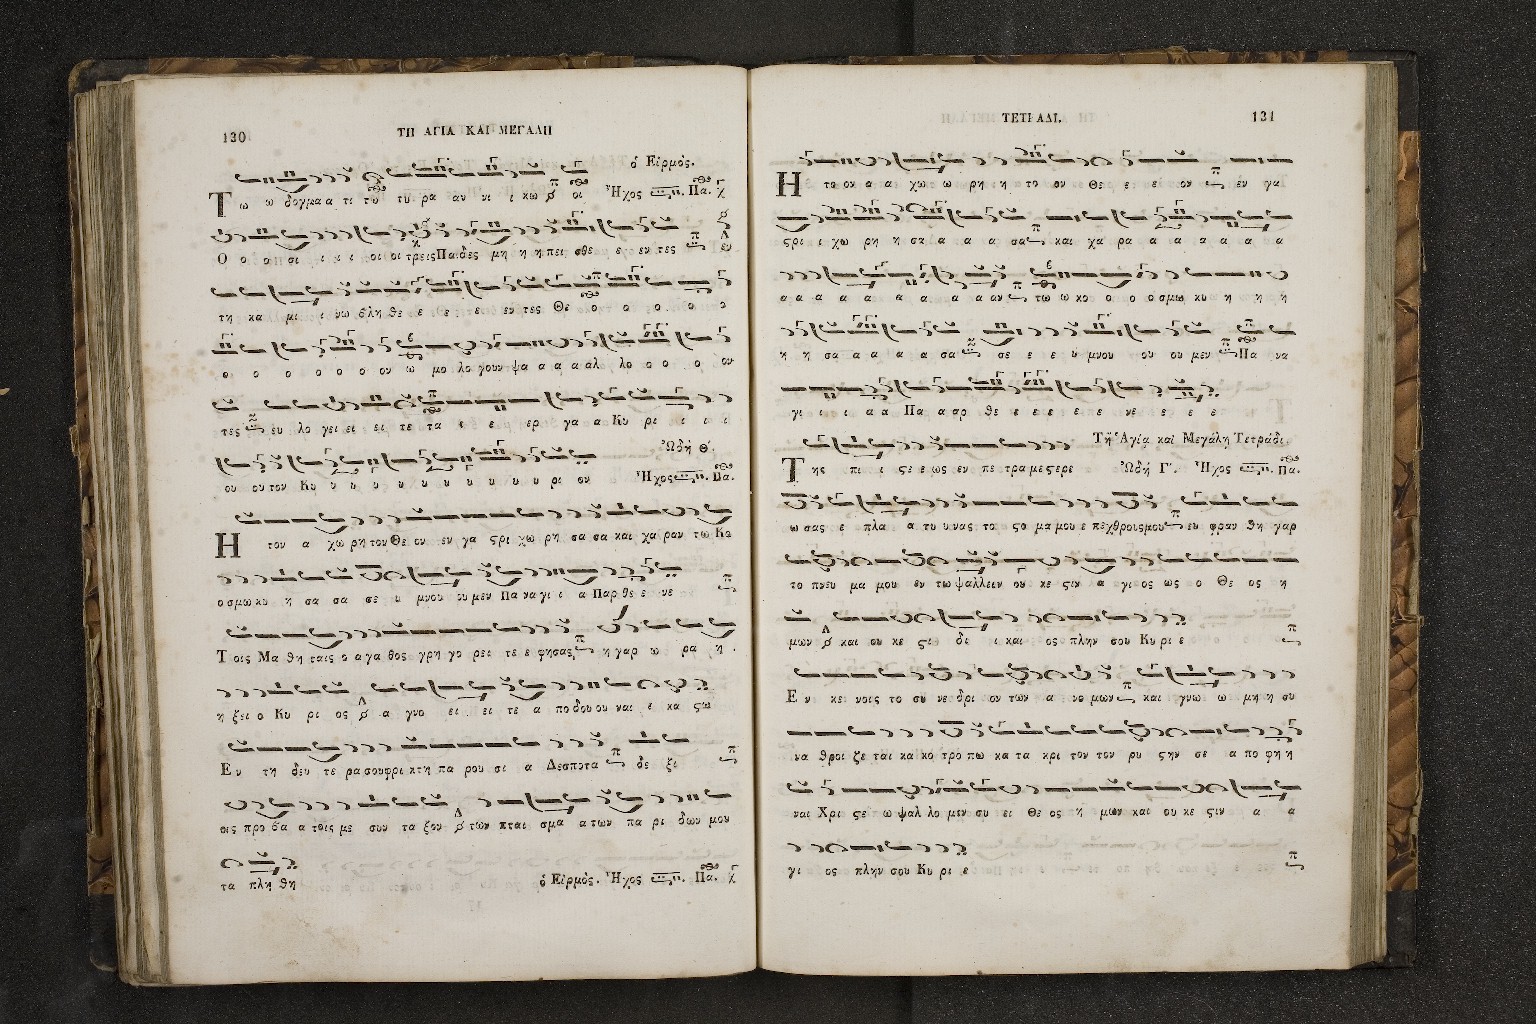 130
ΤΗ ΑΓΙΑ ΚΑΙ ΜΕΓΑΛΗ
ὁ Εἱρμός.
Τ ω ω δογμα α τι τυ τυ ρα αν νι ι κω οι Ἦχος Πα.
Ο ο ο σι ι ι ι οι οι τρεις Παιδες μη η η πει σθε ε εν τες εν
τη κα μι ι νω βλη θε ε ε ε ε εν τες Θε ο ο ο ο ο ο
ο ο ο ο ο ο ον ω μο λο γουν ψα α α α αλ λο ο ο ο ον
τες ευ λο γει ει ει τε τα ε ε ερ γα α Κυ ρι ι ι ι
ου ου τον Κυ υ υ υ υ υ υ υ υ υ υ ρι ον
Ὠδή Θ΄.
Ἦχος Πα.
Η τον α χω ρη τον Θε ον εν γα ςρι χω ρη σα σα και χα ραν τω Κο
ο σμω κυ η σα σα σε υ μνου ου μεν Πα να γι ι α Παρ θε ε νε
Τ οις Μα θη ταις ο α γα θος γρη γο ρει τε ε φησας η γαρ ω ρα η
η ξει ο Κυ ρι ος α γνο ει ει τε α πο δου ου ναι ε κα ςω
Ε ν τη δευ τε ρα σου φρι κτη πα ρου σι α Δεσποτα δε ξι
οις προ βα α τοις με συν τα ξον των πται σμα α των πα ρι δων μου
τα πλη θη
ὁ Εἱρμός. Ἦχος Πα.
ΤΕΤΡΑΔΙ.
131
Η το ον α α χω ω ρη η το ον Θε ε ε ον εν γα
ςρι ι χω ρη η σα α α α σα και χα ρα α α α α α
α α α α α α α α α αν τω ω κο ο ο ο σμω κυ η η η
η η σα α α α α σα σε ε ε υ μνου ου ου μεν Πα να
γι ι ι α α Πα α αρ θε ε ε ε ε ε νε ε ε ε
Τῇ Ἁγίᾳ καὶ Μεγάλῃ Τετράδι.
Τ ης πι ι ςε ε ως εν πε τρα με ςερε Ὠδή Γ΄. Ἦχος Πα.
ω σας ε πλα α τυ υ νας το ςο μα μου ε πεχθρουςμου ευ φραν θη γαρ
το πνευ μα μου εν τω ψαλλειν ου κε ςιν α γι ος ως ο Θε ος η
μων και ου κε ςι δι ι και ος πλην σου Κυ ρι ε
Ε ν κε νοις το συ νε δρι ον των α νο μων και γνω ω μη η συ
να θροι ζε ται κα κο τρο πω κα τα κρι τον τον ρυ ςην σε α πο φη η
ναι Χρι ςε ω ψαλ λο μεν συ ει Θε ος η μων και ου κε ςιν α α
γι ος πλην σου Κυ ρι ε